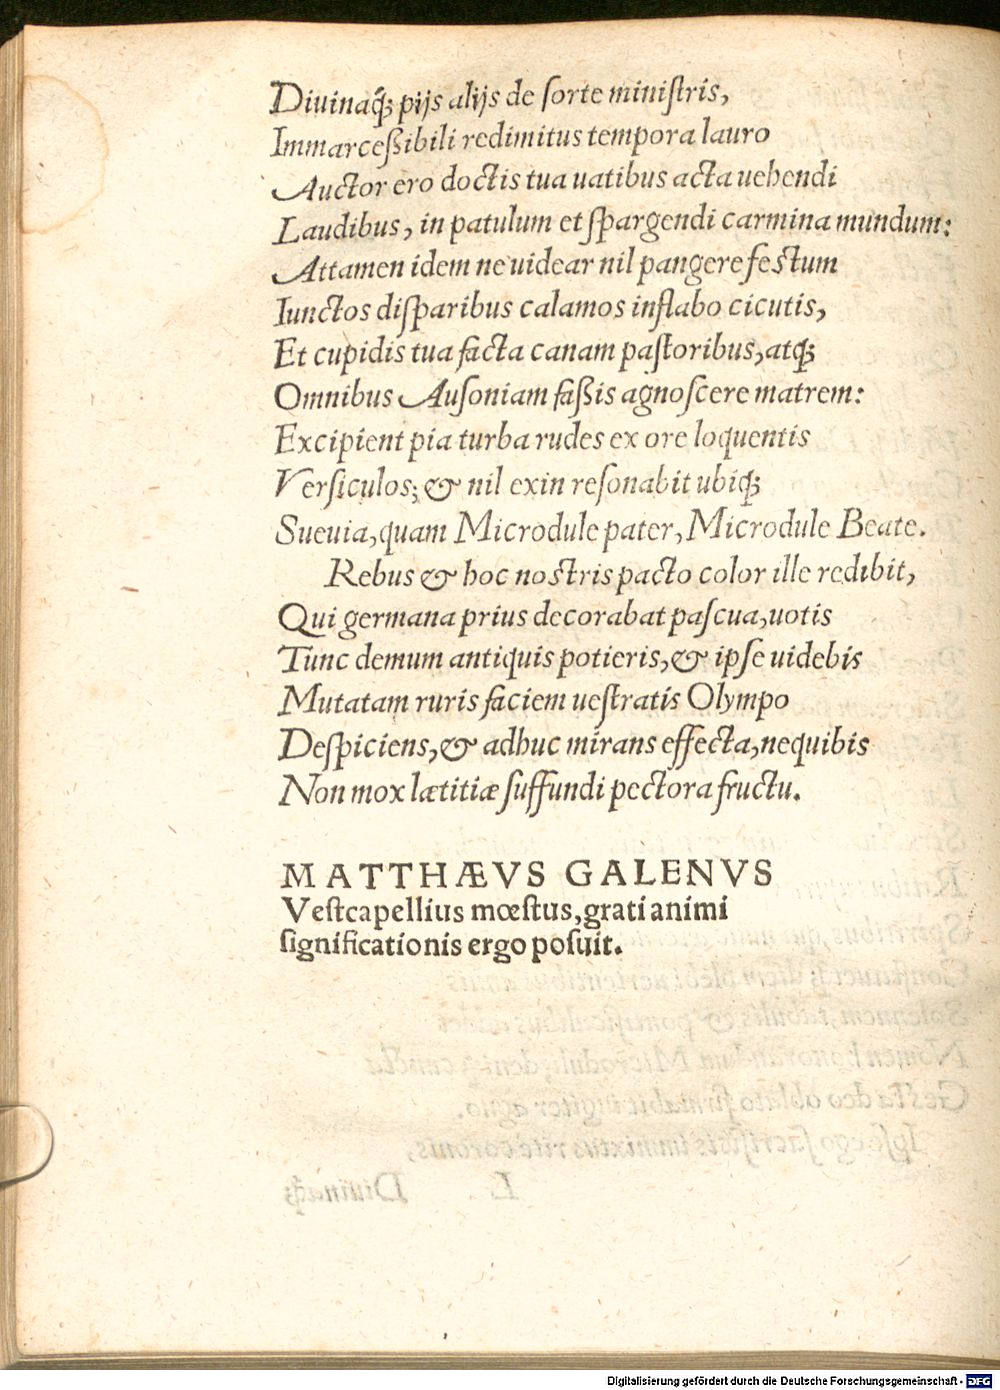 Diuinaq́ꝫ pijs alijs de ſorte miniſtris,
Immarceßibili redimitus tempora lauro
Auctor ero doctis tua uatibus acta uehendi
Laudibus, in patulum et ſpargendi carmina mundum:
Attamen idem ne uidear nil pangere feſtum
Iunctos diſparibus calamos inflabo cicutis,
Et cupidis tua facta canam paſtoribus, atqꝫ
Omnibus Auſoniam faßis agnoſcere matrem:
Excipient pia turba rudes ex ore loquentis
Verſiculos; & nil exin reſonabit ubiqꝫ
Sueuia, quam Microdule pater, Microdule Beate.
Rebus & hoc noſtris pacto color ille redibit,
Qui germana prius decorabat paſcua, uotis
Tunc demum antiquis potieris, & ipſe uidebis
Mutatam ruris faciem ueſtratis Olympo
Deſpiciens, & adhuc mirans effecta, nequibis
Non mox lætitiæ ſuffundi pectora fructu.
MATTHÆVS GALENVS
Veſtcapellius mœſtus, grati animi
ſignificationis ergo poſuit.
Digitalisierung gefördert durch die Deutsche Forschungsgemeinschaft - DFG